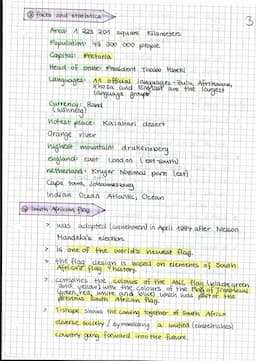 3
facts and statistics
Area: 1 223 201 square Kilometers
Population: 48 300 000 people
Capital: Pretoria
Head of state: President Thabo Mbeki
Languages: 11 official languages - Zulu, Afrikaans,
Xhosa and English are the largest
language groups
Currency: Rand
hottest place: Kalahari desert
Orange river
highest mountain: drakensberg
england: East London
netherland: Kruger National park (east)
Cape town, Johannesburg
Indian Ocean Atlantic Ocean
South African flag
> was adopted after Nelson
Mandela's election
> is one of the world's newest flag.
> the flag design is based on elements of South
African flag history.
> combines the colours of the ANC flag (black, green
and yellow) with the colours of the
(green, red, white and blue) which was part of the
previous South African flag.
> T-shape: shows the coming together of South Africa
diverse society / symbolizing a united
country going forward into the future.